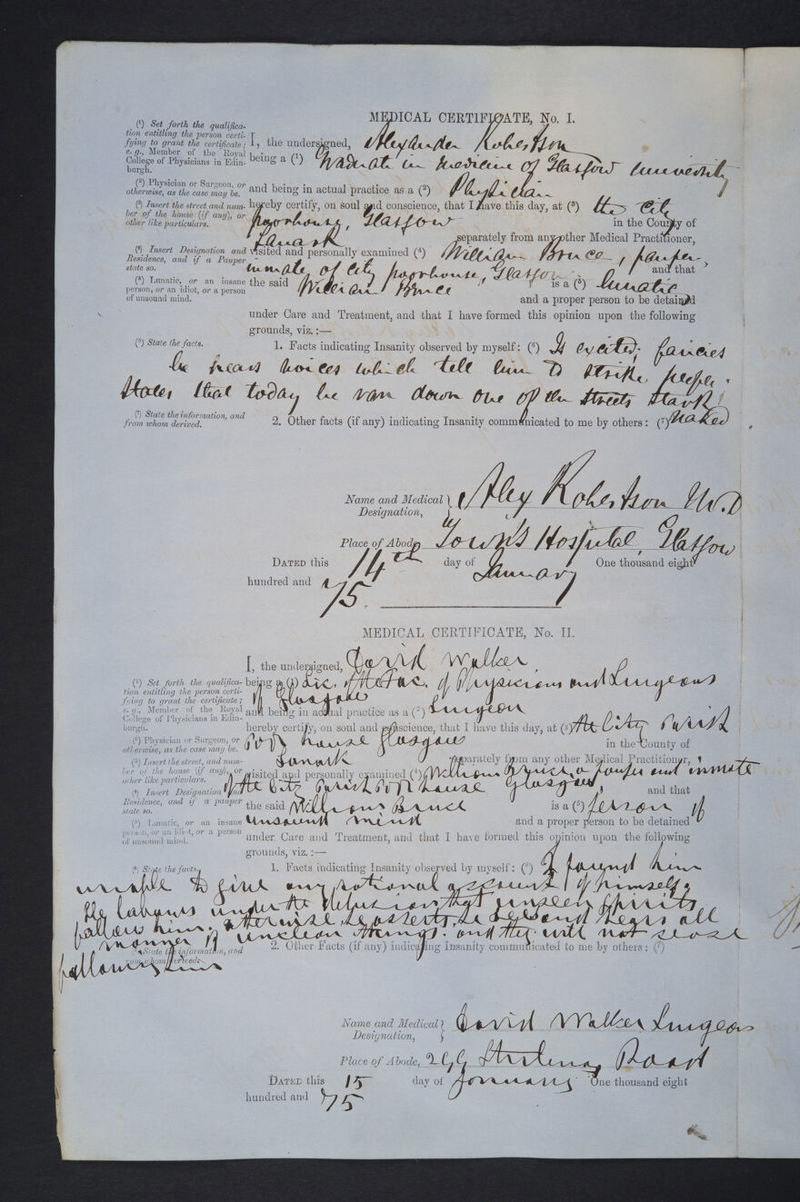 MEDICAL CERTIFICATE, No. I.
(¹) Set forth the qualifica-
tion entitling the person certi-
fying to grant the certificate;
e.g., Member of the Royal
College of Physicians in Edin-
burgh.
I, the undersigned, Alexander Robertson
being a (¹) Graduate in medicine of Glasgow University
(²) Physician or Surgeon, or
otherwise, as the case may be.
and being in actual practice as a (²) Physician
(³) Insert the street and num-
ber of the house (if any), or
other like particulars.
hereby certify, on soul and conscience, that I have this day, at (³) the City
poorhouse, Glasgow in the County of
Lanark separately from any other Medical Practitioner,
(⁴) Insert Designation and
Residence, and if a Pauper
state so.
visited and personally examined (⁴) William Bruce, pauper,
inmate of City poorhouse, Glasgow and that
(⁵) Lunatic, or an insane
person, or an idiot, or a person
of unsound mind.
the said William Bruce is a (⁵) lunatic
and a proper person to be detained
under Care and Treatment, and that I have formed this opinion upon the following
grounds, viz.:—
(⁶) State the facts.
1. Facts indicating Insanity observed by myself: (⁶) Is excited; fancies
he hears voices which tell him to strike people.
States that today he ran down one of the streets stark
naked
(⁷) State the information, and
from whom derived.
2. Other facts (if any) indicating Insanity communicated to me by others: (⁷)
Name and Medical
Designation, } Alex Robertson M.D
Place of Abode Town's Hospital, Glasgow
DATED this 14th day of January One thousand eight
hundred and 75.
MEDICAL CERTIFICATE, No. II.
I, the undersigned, David Walker
(¹) Set forth the qualifica-
tion entitling the person certi-
fying to grant the certificate;
e.g., Member of the Royal
College of Physicians in Edin-
burgh.
being a (¹) Lic. of the Fac. of Physicians and Surgeons
of Glasgow
and being in actual practice as a (²) Surgeon
(²) Physician or Surgeon, or
otherwise, as the case may be.
hereby certify, on soul and conscience, that I have this day, at (³) the City Parish
Poor house Glasgow in the County of
(³) Insert the street, and num-
ber of the house (if any), or
other like particulars.
Lanark separately from any other Medical Practitioner,
visited and personally examined (⁴) William Bruce a pauper and inmate
(⁴) Insert Designation
Residence, and if a pauper
state so.
of the City Parish Poor house Glasgow, and that
the said William Bruce is a (⁵) person of
(⁵) Lunatic, or an insane
person, or an idiot, or a person
of unsound mind.
unsound mind and a proper person to be detained
under Care and Treatment, and that I have formed this opinion upon the following
grounds, viz.:—
(⁶) State the facts.
1. Facts indicating Insanity observed by myself: (⁶) I found him
unable to give any rational account of himself.
He labours under the delusion that unseen spirits
follow him, otherwise he asserts he sees and hears all
manner of unclean things. and they will not cease
following him
(⁷) State the information, and
from whom derived.
2. Other Facts (if any) indicating Insanity communicated to me by others: (⁷)
Name and Medical
Designation, } David Walker Surgeon
Place of Abode, Road
DATED this 15 day of January One thousand eight
hundred and 75